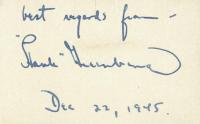 best regards from -
"Hank" Greenberg
Dec 22, 1945.